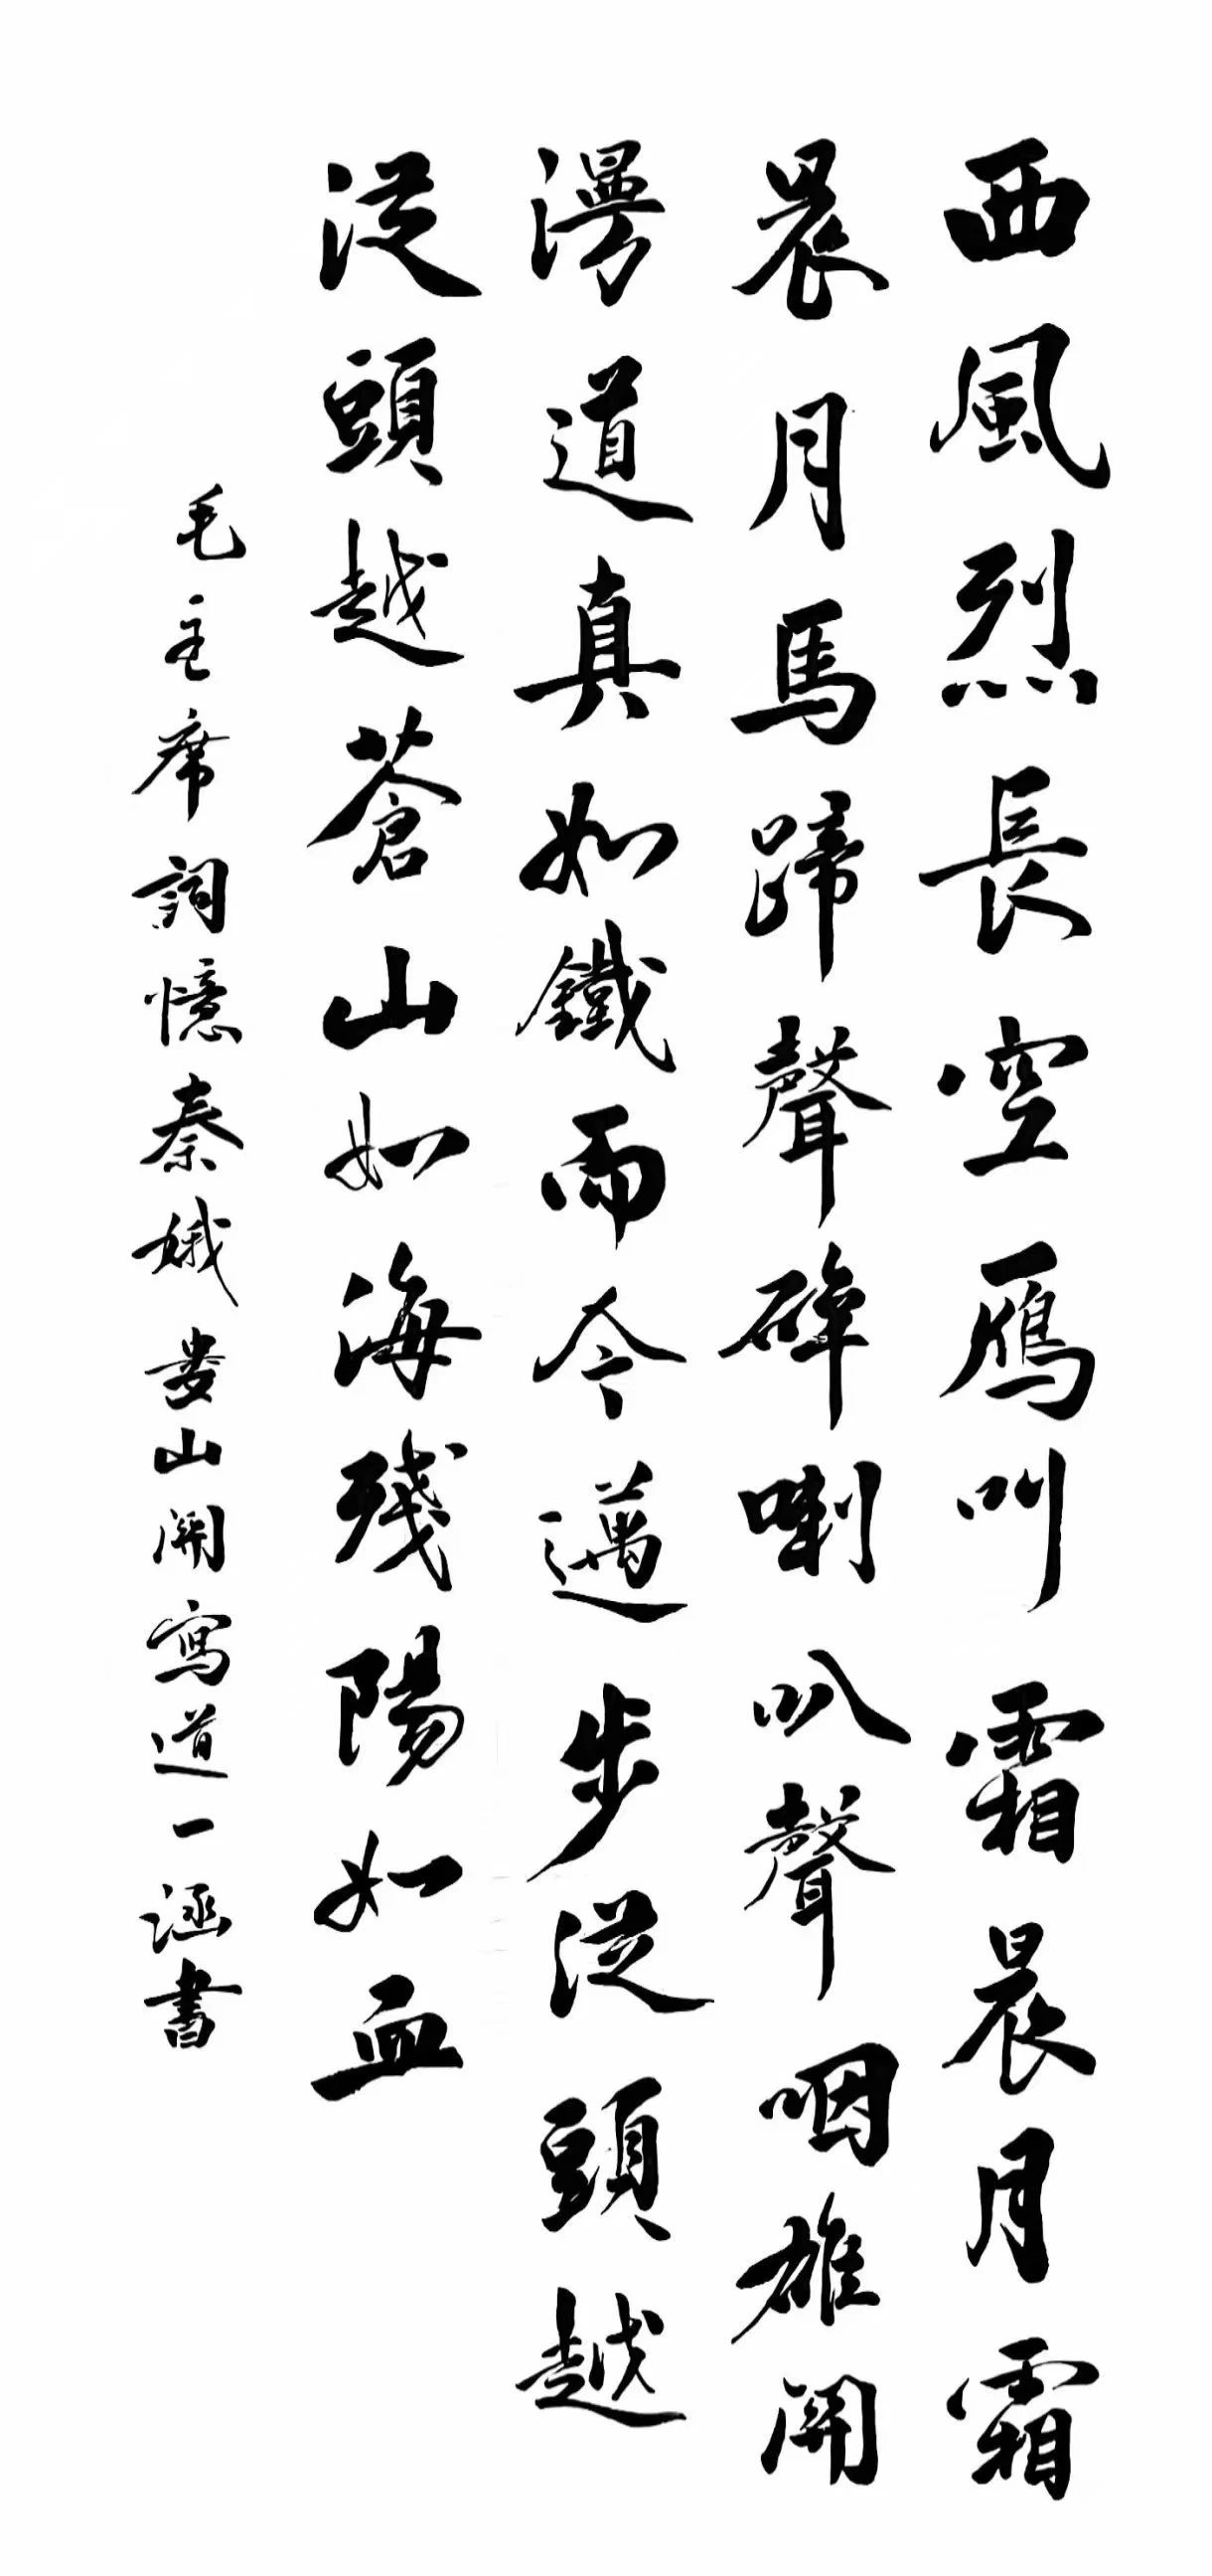 西風烈長空雁叫霜晨月霜
晨月馬蹄聲碎喇叭聲咽雄關
漫道真如鐵而今邁步從頭越
從頭越蒼山如海殘陽如血
毛主席詞憶秦娥婁山關寫道一涵書